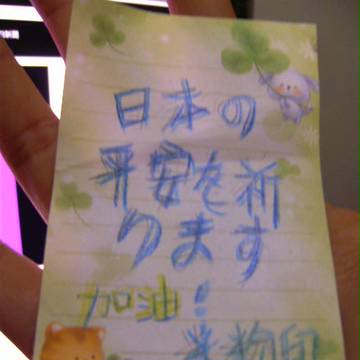 日本の
平安を祈
ります
加油！